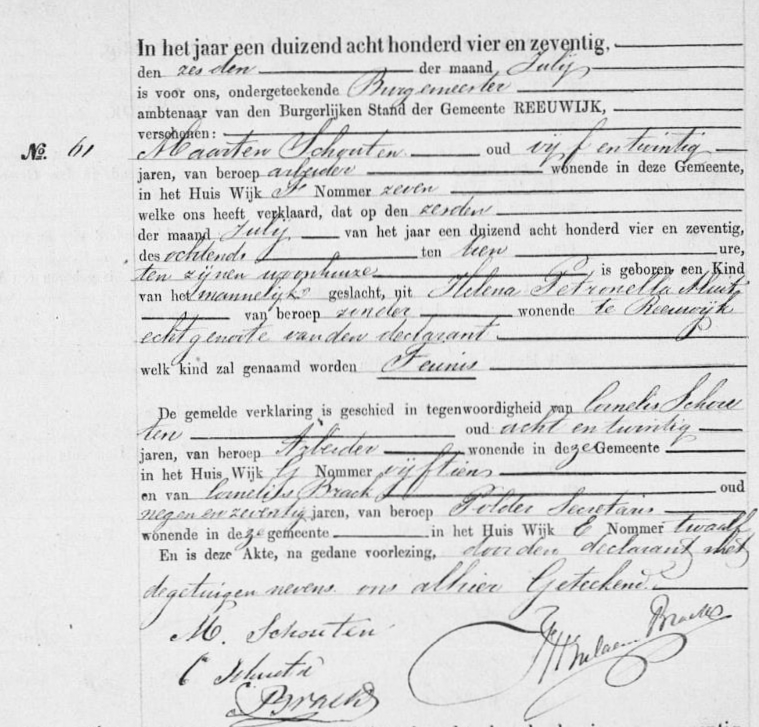 In het jaar een duizend acht honderd vier en zeventig,
den zesden der maand Julij
is voor ons, ondergeteekende Burgemeester
ambtenaar van den Burgerlijken Stand der Gemeente REEUWIJK,
verschenen:
No. 61 Maarten Schouten oud vijf en twintig
jaren, van beroep arbeider wonende in deze Gemeente,
in het Huis Wijk Nommer zeven
welke ons heeft verklaard, dat op den zesden
der maand Julij van het jaar een duizend acht honderd vier en zeventig,
des ochtends ten tien ure,
ten zijnen woonhuize is geboren een Kind
van het mannelijk geslacht, uit Helena Petronella
van beroep zonder wonende te Reeuwijk
echtgenoote van den declarant
welk kind zal genaamd worden Teunis
De gemelde verklaring is geschied in tegenwoordigheid van Cornelis Schou
ten oud acht en twintig
jaren, van beroep Arbeider wonende in deze Gemeente
in het Huis Wijk G Nommer vijftien
en van Cornelis Brack oud
negen en zeventig jaren, van beroep Polder Secretaris
wonende in deze gemeente in het Huis Wijk E Nommer twaalf
En is deze Akte, na gedane voorlezing, door den declarant met
de getuigen nevens ons alhier Geteekend.
M. Schouten
C Schouten
C Brack